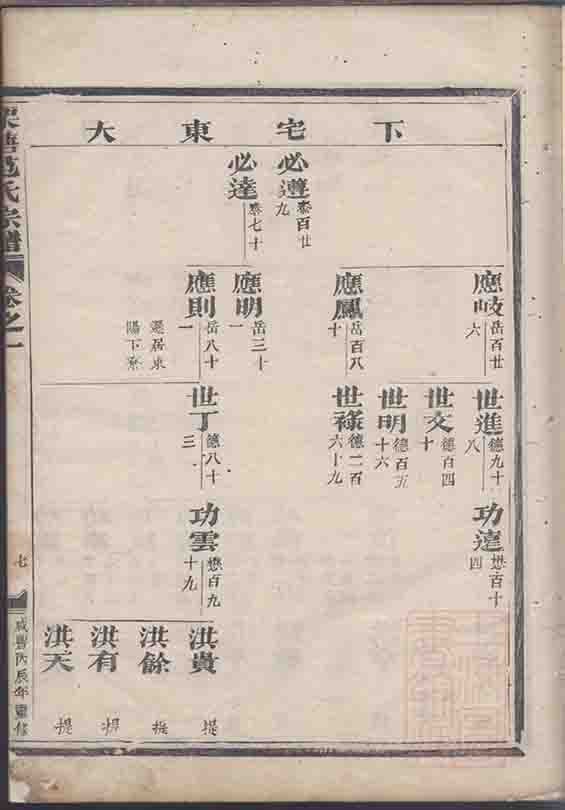 下宅東大
必遵 泰百廿九
必達 泰七十
應岐 岳百廿六
應鳳 岳百八十
應明 岳三十一
應則 岳八十一
遷居東陽下
世進 德九十八
世文 德百四十
世明 德百五十六
世祿 德二百六十九
世丁 德八十三
功達 懋百十四
功雲 懋百九十九
洪貴 提
洪餘 提
洪有 提
洪天 提
范氏宗譜 卷之一
七
咸豐丙辰年重修